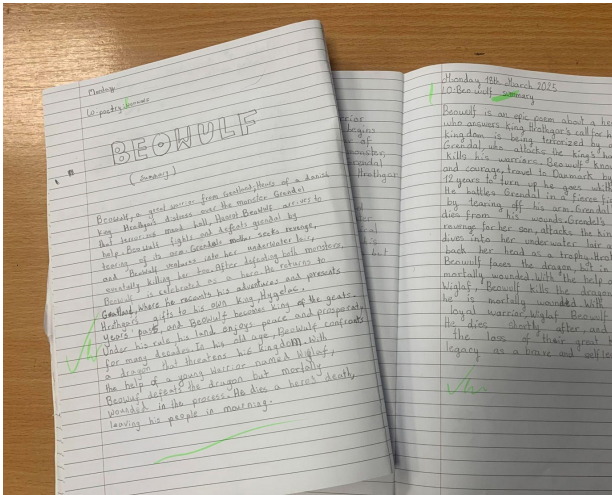 Monday
LO: poetry
BEOWULF
(Summary)
Beowulf, a great warrior from Geatland, Hears of a danish
king Hrothgar's distress over the monster Grendel
that terrorises mead hall, Heorot. Beowulf arrives to
help. Beowulf fights and defeats grendel by
tearing of its arm. Grendels mother seeks revenge,
and Beowulf ventures into her underwater lair,
eventually killing her too. After defeating both monsters,
Beowulf is celebrated as a hero. He returns to
Geatland, where he recounts his adventures and presents
Hrothgars gifts to his own king, Hygelac.
Years past, and Beowulf becomes king of the geats.
Under his rule his land enjoys peace and
for many decades. In his old age, Beowulf confronts
a dragon that threatens his kingdom. With
the help of a young warrior named Wiglaf,
Beowulf defeats the dragon but mortally
wounded in the process. He dies a heros death,
leaving his people in mourning.
begins
of
monster,
Grendal
Hrothgar
but
Monday 18th March 2025
LO: Beowulf summary
Beowulf is an epic poem about a
who answers King Hrothgar's call for
Kingdom is being terrorized by
Grendel, who attacks the king's
Kills his warriors. Beowulf
and courage, travel to Danmark
12 years to turn up he goes
He battles Grendel in a fierce
by tearing off his arm. Grendel
dies from his wounds. Grendel's
revenge for her son, attacks the
dives into her underwater lair
back her head as a trophy.
Beowulf faces the dragon, but is
mortally wounded. With the help of
Wiglaf, Beowulf kills the dragon
he is mortally wounded. With
loyal warrior, Wiglaf Beowulf
He dies shortly after, and
the loss of their great
legacy as a brave and